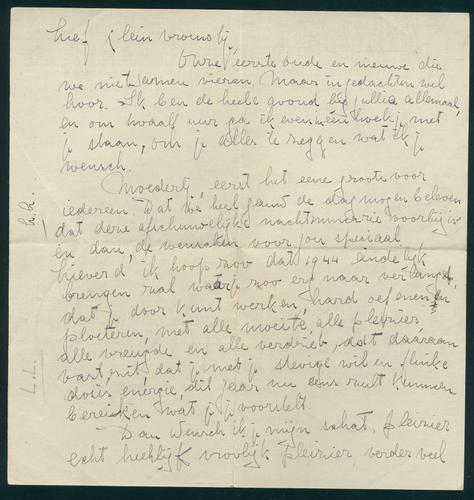 Lief klein vrouwtje,
Onze eerste oude en nieuwe die
we niet samen vieren. Maar in gedachten wel
hoor. Ik ben de heele avond bij jullie allemaal,
en om twaalf uur ga ik even in een hoekje met
je staan, om je alles te zeggen wat ik je
wensch.
Moedertje, eerst het eene groote voor
iedereen. Dat we heel gauw de dag mogen beleven
dat deze afschuwelijke nachtmerrie voorbij is
en dan, de wenschen voor jou speciaal,
lieverd ik hoop zoo dat 1944 eindelijk
brengen zal waar je zoo erg naar verlangt,
dat je door kunt werken, hard oefenen en
ploeteren, met alle moeite, alle plezier
alle vreugde en alle verdriet, dat daaraan
vast zit, dat je, met je stevige wil en flinke
dosis energie, dit jaar nu eens zult kunnen
bereiken wat je je voorstelt.
Dan wensch ik je mijn schat, plezier
echt heerlijk vroolijk plezier, verder veel